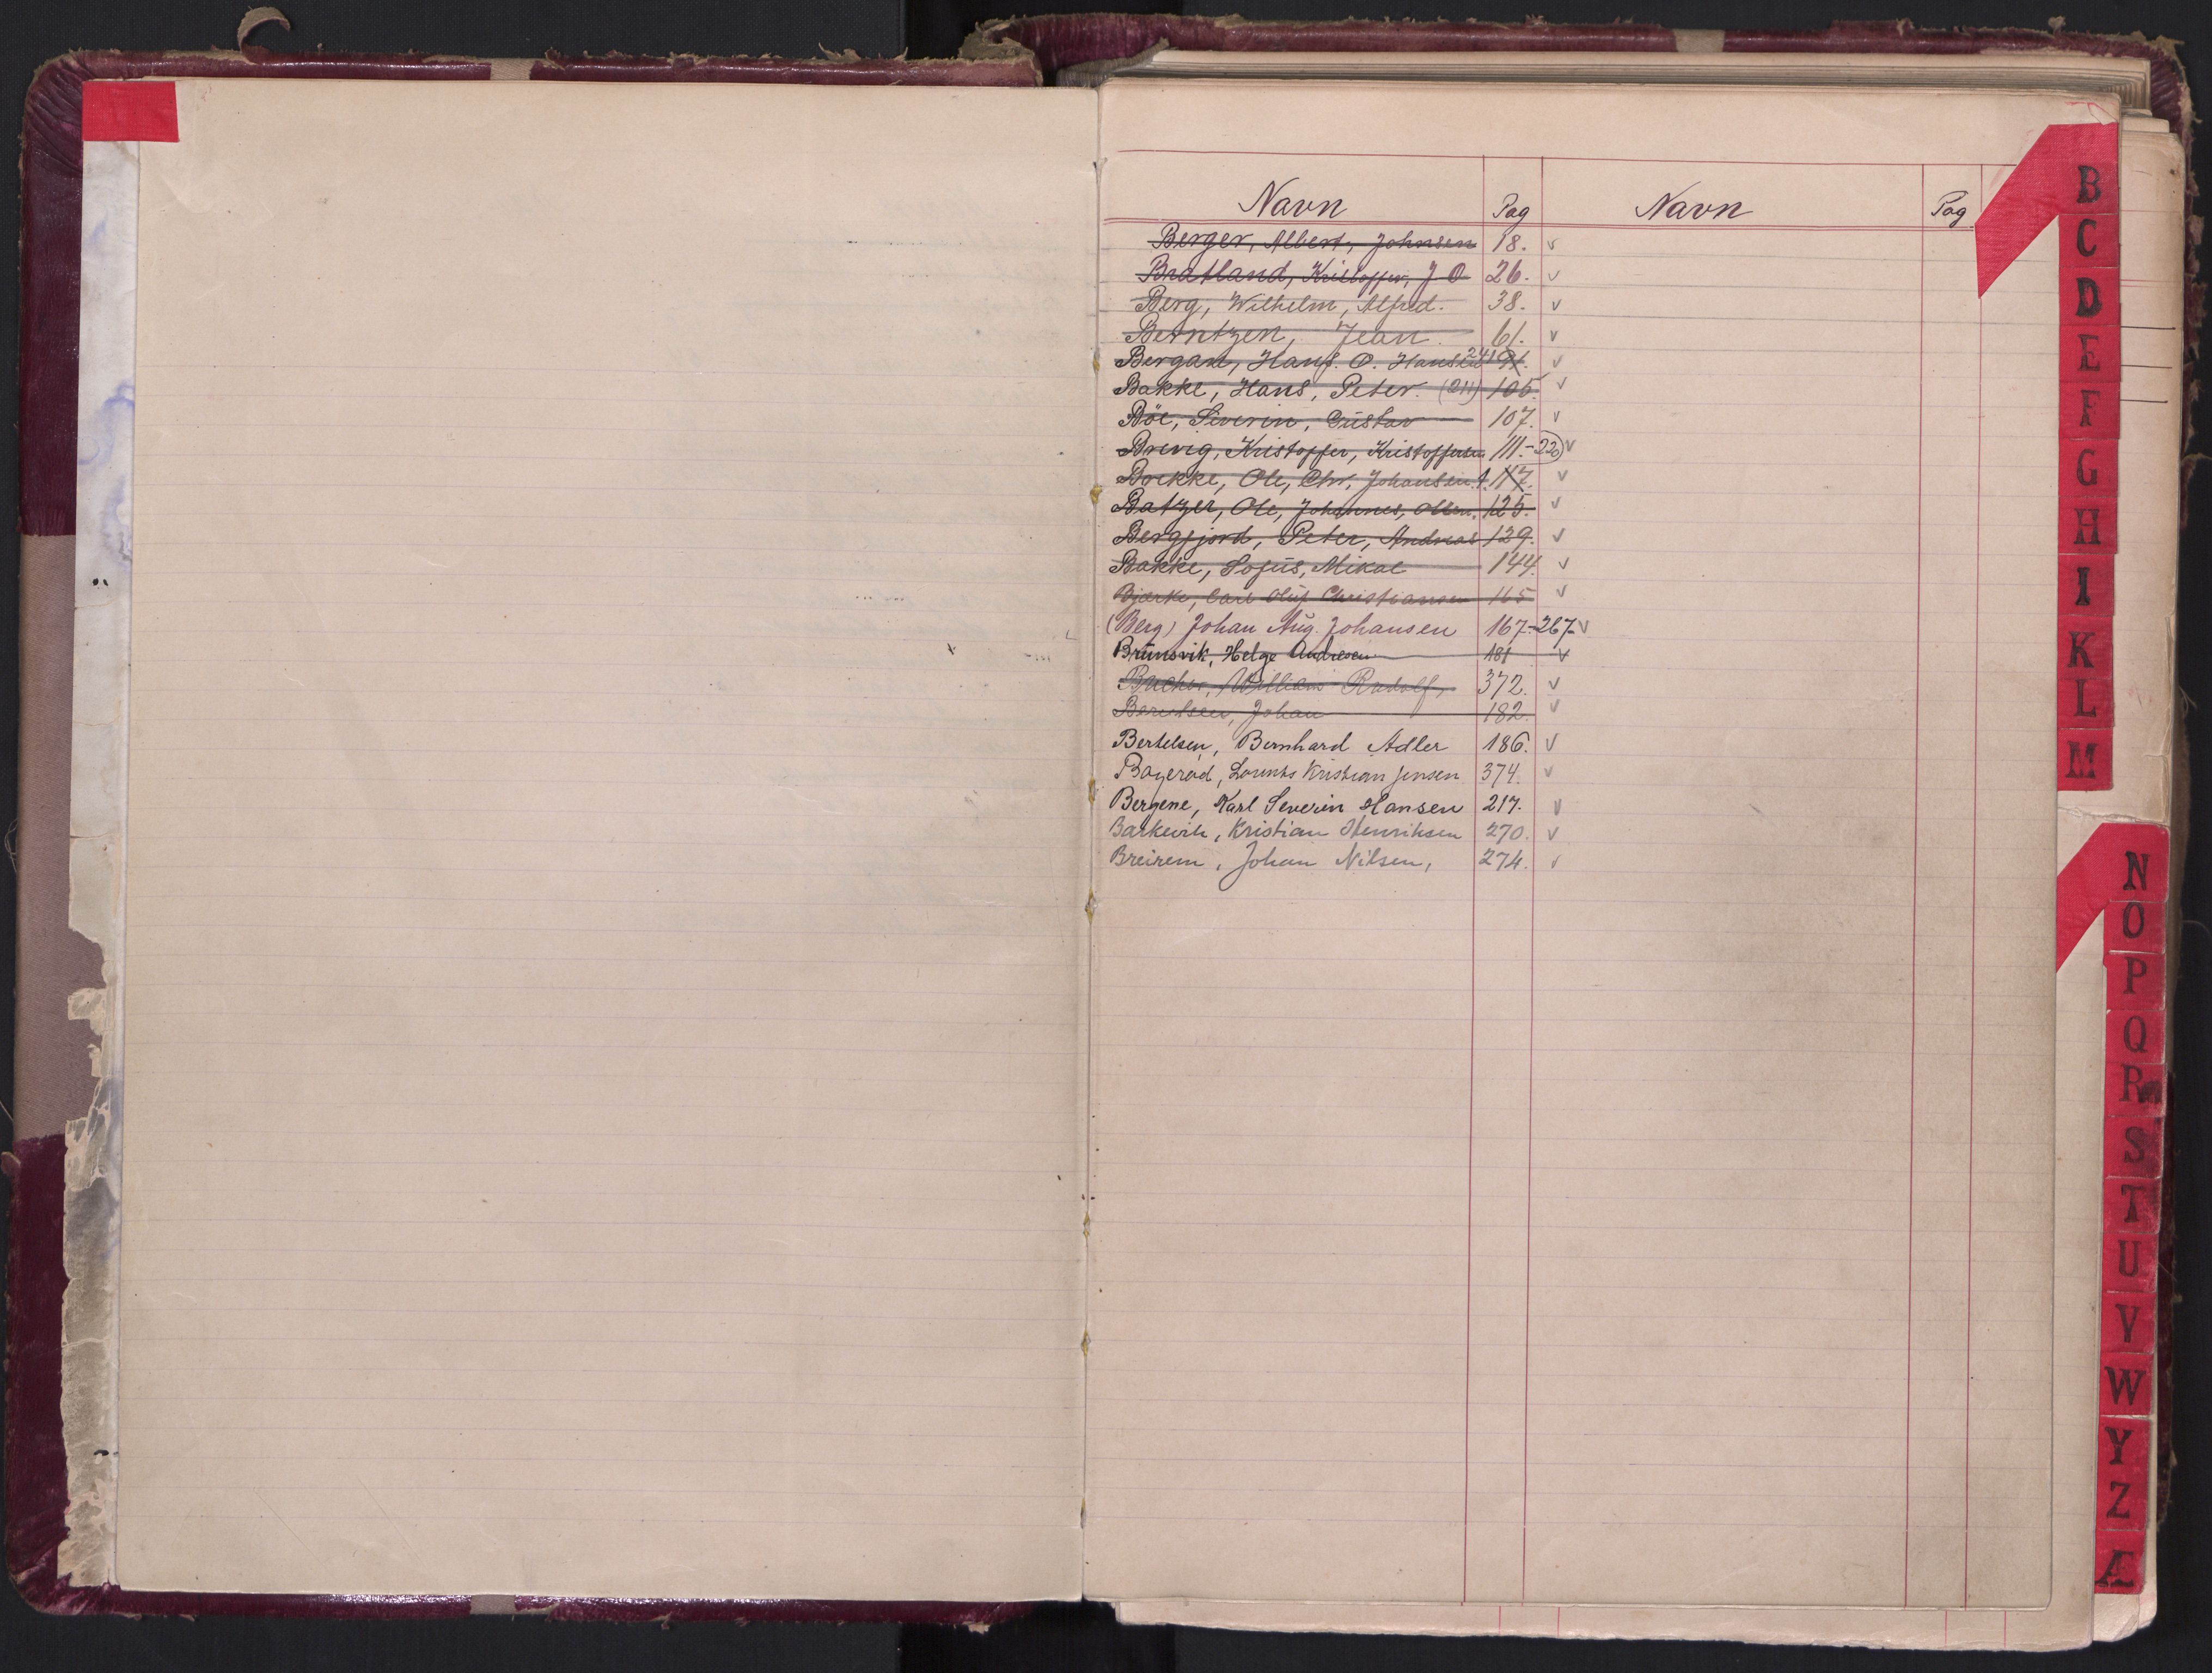 Navn Pag Navn Pag
Berger, Albert, Johnsen 18. v
Bratland, Kristoffer, J O 26. v
Berg, Wilhelm, Alfred. 38. v
Berntzen, Jean. 61. v
Bergan, Hans. O. Hansen 241 91. v
Bakke, Hans, Peter. (211) 105 v
Böe, Severin, Gustav 107. v
Brevig, Kristoffer, Kristoffersen 111.-220 v
Boekke, Ole, Chr. Johansen 117. v
Batzer, Ole, Johannes, Olsen. 125. v
Bergfjord, Peter, Andreas 129. v
Bakke, Sofus, Mikal 144. v
Bjerke, Carl Oluf Christiansen 165 v
(Berg) Johan Aug. Johansen 167-267 v
Brunsvik, Helge Andresen 181 v
Bucher, William Rudolf, 372. v
Berntsen, Johan 182. v
Bertelsen, Bernhard Adler 186. v
Bøyerød, Lorents Kristian Jensen 374. v
Bergene, Karl Severin Hansen 217. v
Barkevik, Kristian Henriksen 270. v
Breirem, Johan Nilsen, 274. v
B
C
D
E
F
G
H
I
K
L
M
N
O
P
Q
R
S
T
U
V
W
Y
Z
Æ